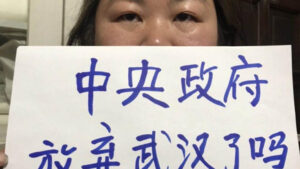 中央政府
放弃武汉了吗